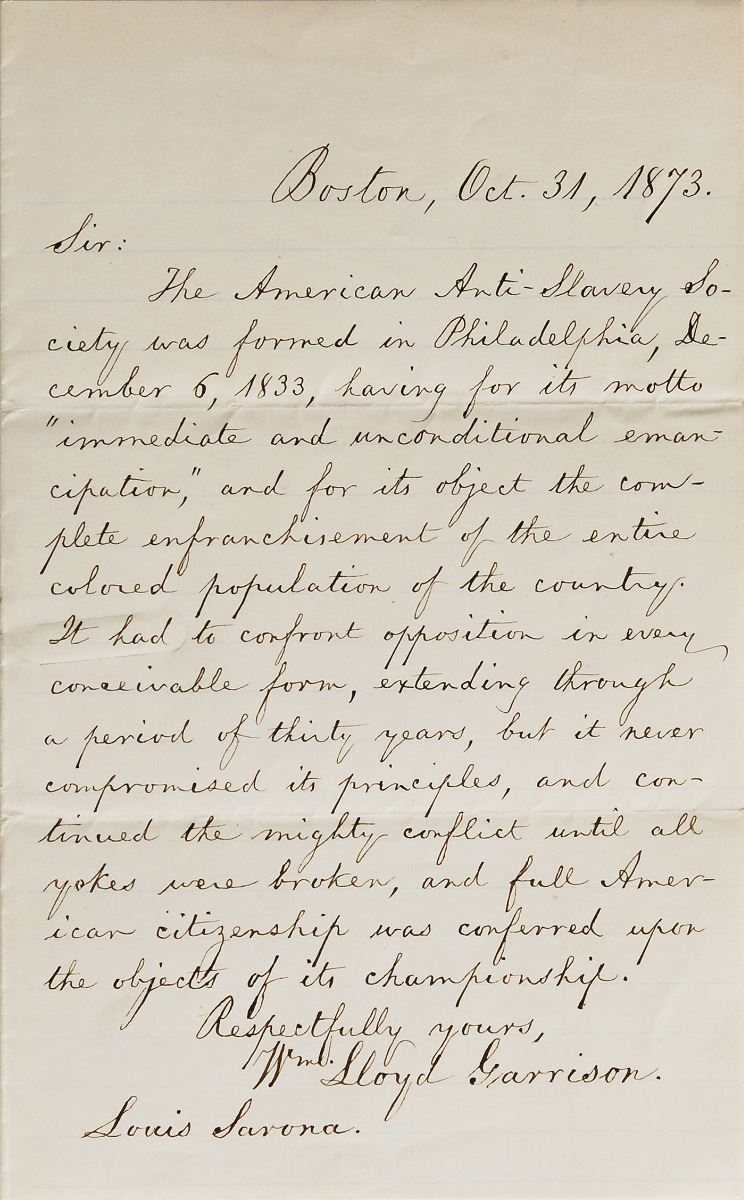 Boston, Oct. 31, 1873.
Sir:
The American Anti-Slavery So-
ciety was formed in Philadelphia, De-
cember 6, 1833, having for its motto
"immediate and unconditional eman-
cipation," and for its object the com-
plete enfranchisement of the entire
colored population of the country.
It had to confront opposition in every
conceivable form, extending through
a period of thirty years, but it never
compromised its principles, and con-
tinued the mighty conflict until all
yokes were broken, and full Amer-
ican citizenship was conferred upon
the objects of its championship.
Respectfully yours,
Wm. Lloyd Garrison.
Louis Sarona.